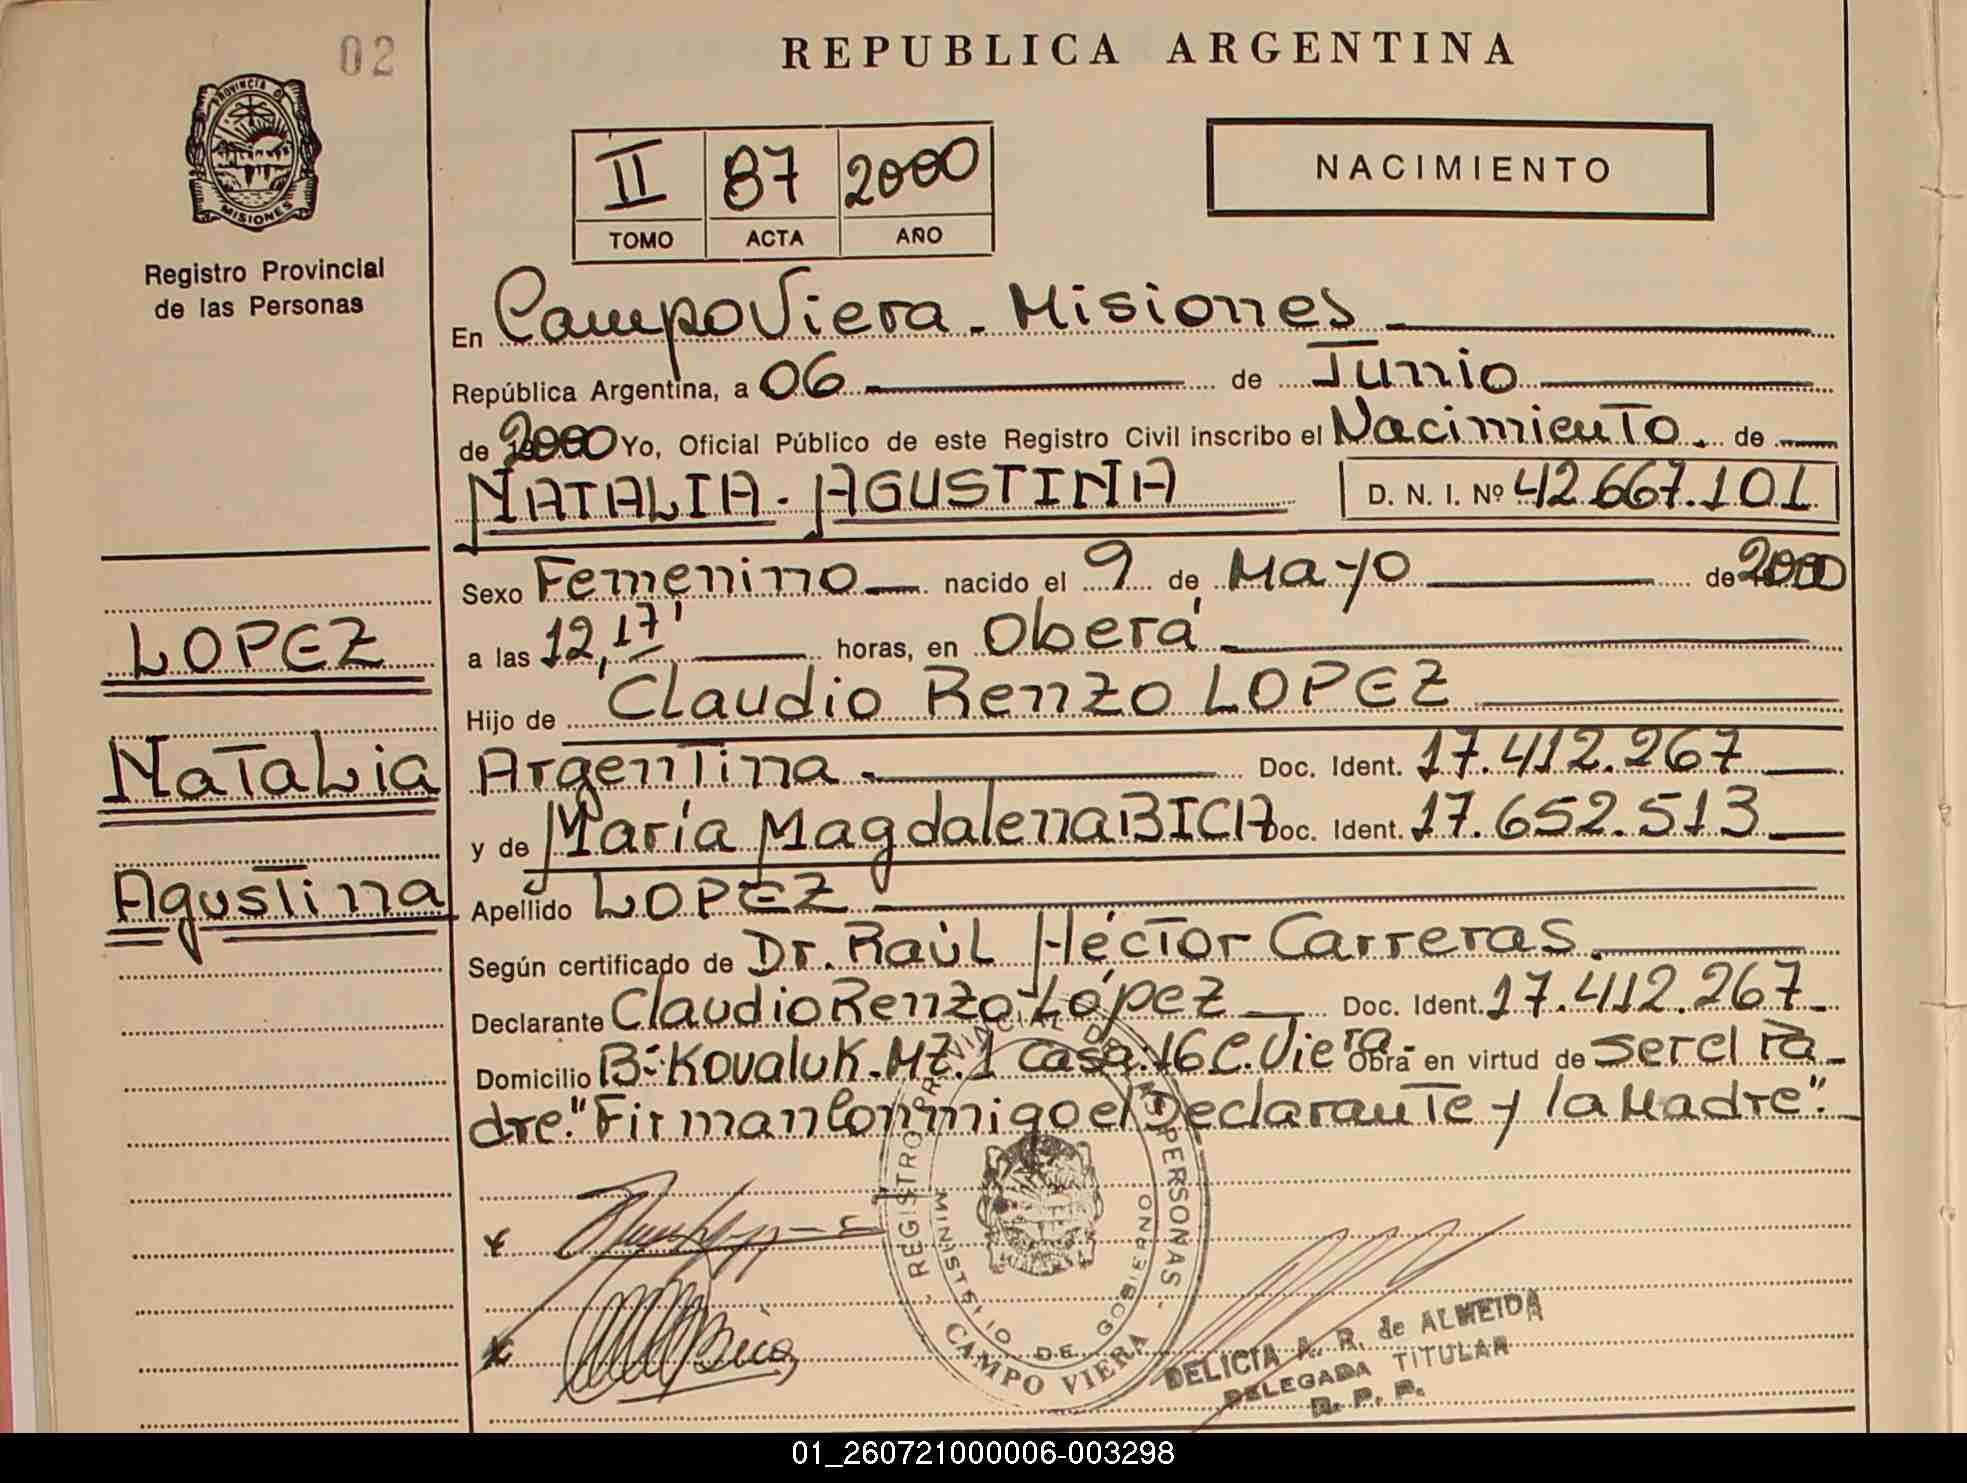 02
REPUBLICA ARGENTINA
PROVINCIA D
MISIONES
Registro Provincial
de las Personas
II 87 2000
TOMO ACTA AÑO
NACIMIENTO
En Campo Viera - Misiones
República Argentina, a 06 de Junio
de 2000 Yo, Oficial Público de este Registro Civil inscribo el Nacimiento. de
NATALIA - AGUSTINA D. N. I. Nº 42.667.101
Sexo Femenino nacido el 9 de Mayo de 2000
a las 12,17' horas, en Oberá
Hijo de Claudio Renzo LOPEZ
Argentina Doc. Ident. 17.412.267
y de María Magdalena BICA Doc. Ident. 17.652.513
Apellido LOPEZ
Según certificado de Dr. Raúl Héctor Carreras
Declarante Claudio Renzo López Doc. Ident. 17.412.267
Domicilio Bº Kovaluk. Mz. 1 Casa 16 C. Viera - Obra en virtud de ser el Pa-
dre. "Firman Conmigo el Declarante y la Madre".
LOPEZ
Natalia
Agustina
REGISTRO PROVINCIAL DE LAS PERSONAS
MINISTERIO DE GOBIERNO
CAMPO VIERA
Bica
DELICIA A. R. de ALMEIDA
DELEGADA TITULAR
R. P. P.
01_260721000006-003298